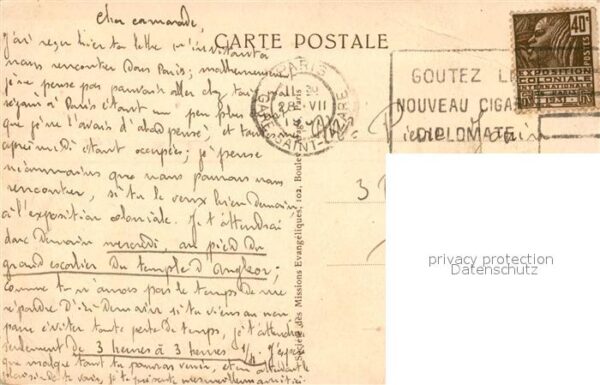 Cher camarade,
J'ai reçu hier ta lettre m'invitant à
nous rencontrer dans Paris; malheureusement
je ne pense pas pouvoir aller chez toi, mon
séjour à Paris étant un peu plus
que je l'avais d'abord pensé; et tout mon
après-midi étant occupées; je pense
néanmoins que nous pouvons nous
rencontrer, si tu le veux bien demain,
à l'exposition coloniale. Je t'attendrai
donc demain mercredi, au pied du
grand escalier du temple d'Angkor;
comme tu n'aurais pas le temps de me
répondre d'ici demain si tu viens ou non,
pour éviter toute perte de temps, je t'attendrai
seulement de 3 heures à 3 heures 1/4. J'espère
que malgré tout tu pourras venir, et en attendant le
plaisir de te voir, je te présente mes meilleures amitiés.
CARTE POSTALE
PARIS
GARE SAINT-LAZARE
28 VII
GOUTEZ LE
NOUVEAU CIGARE
DIPLOMATE
40c
POSTES
EXPOSITION
COLONIALE
INTERNATIONALE
PARIS 1931
Pierre
3
Société des Missions Evangéliques, 102, Boulev. Arago, Paris
privacy protection
Datenschutz